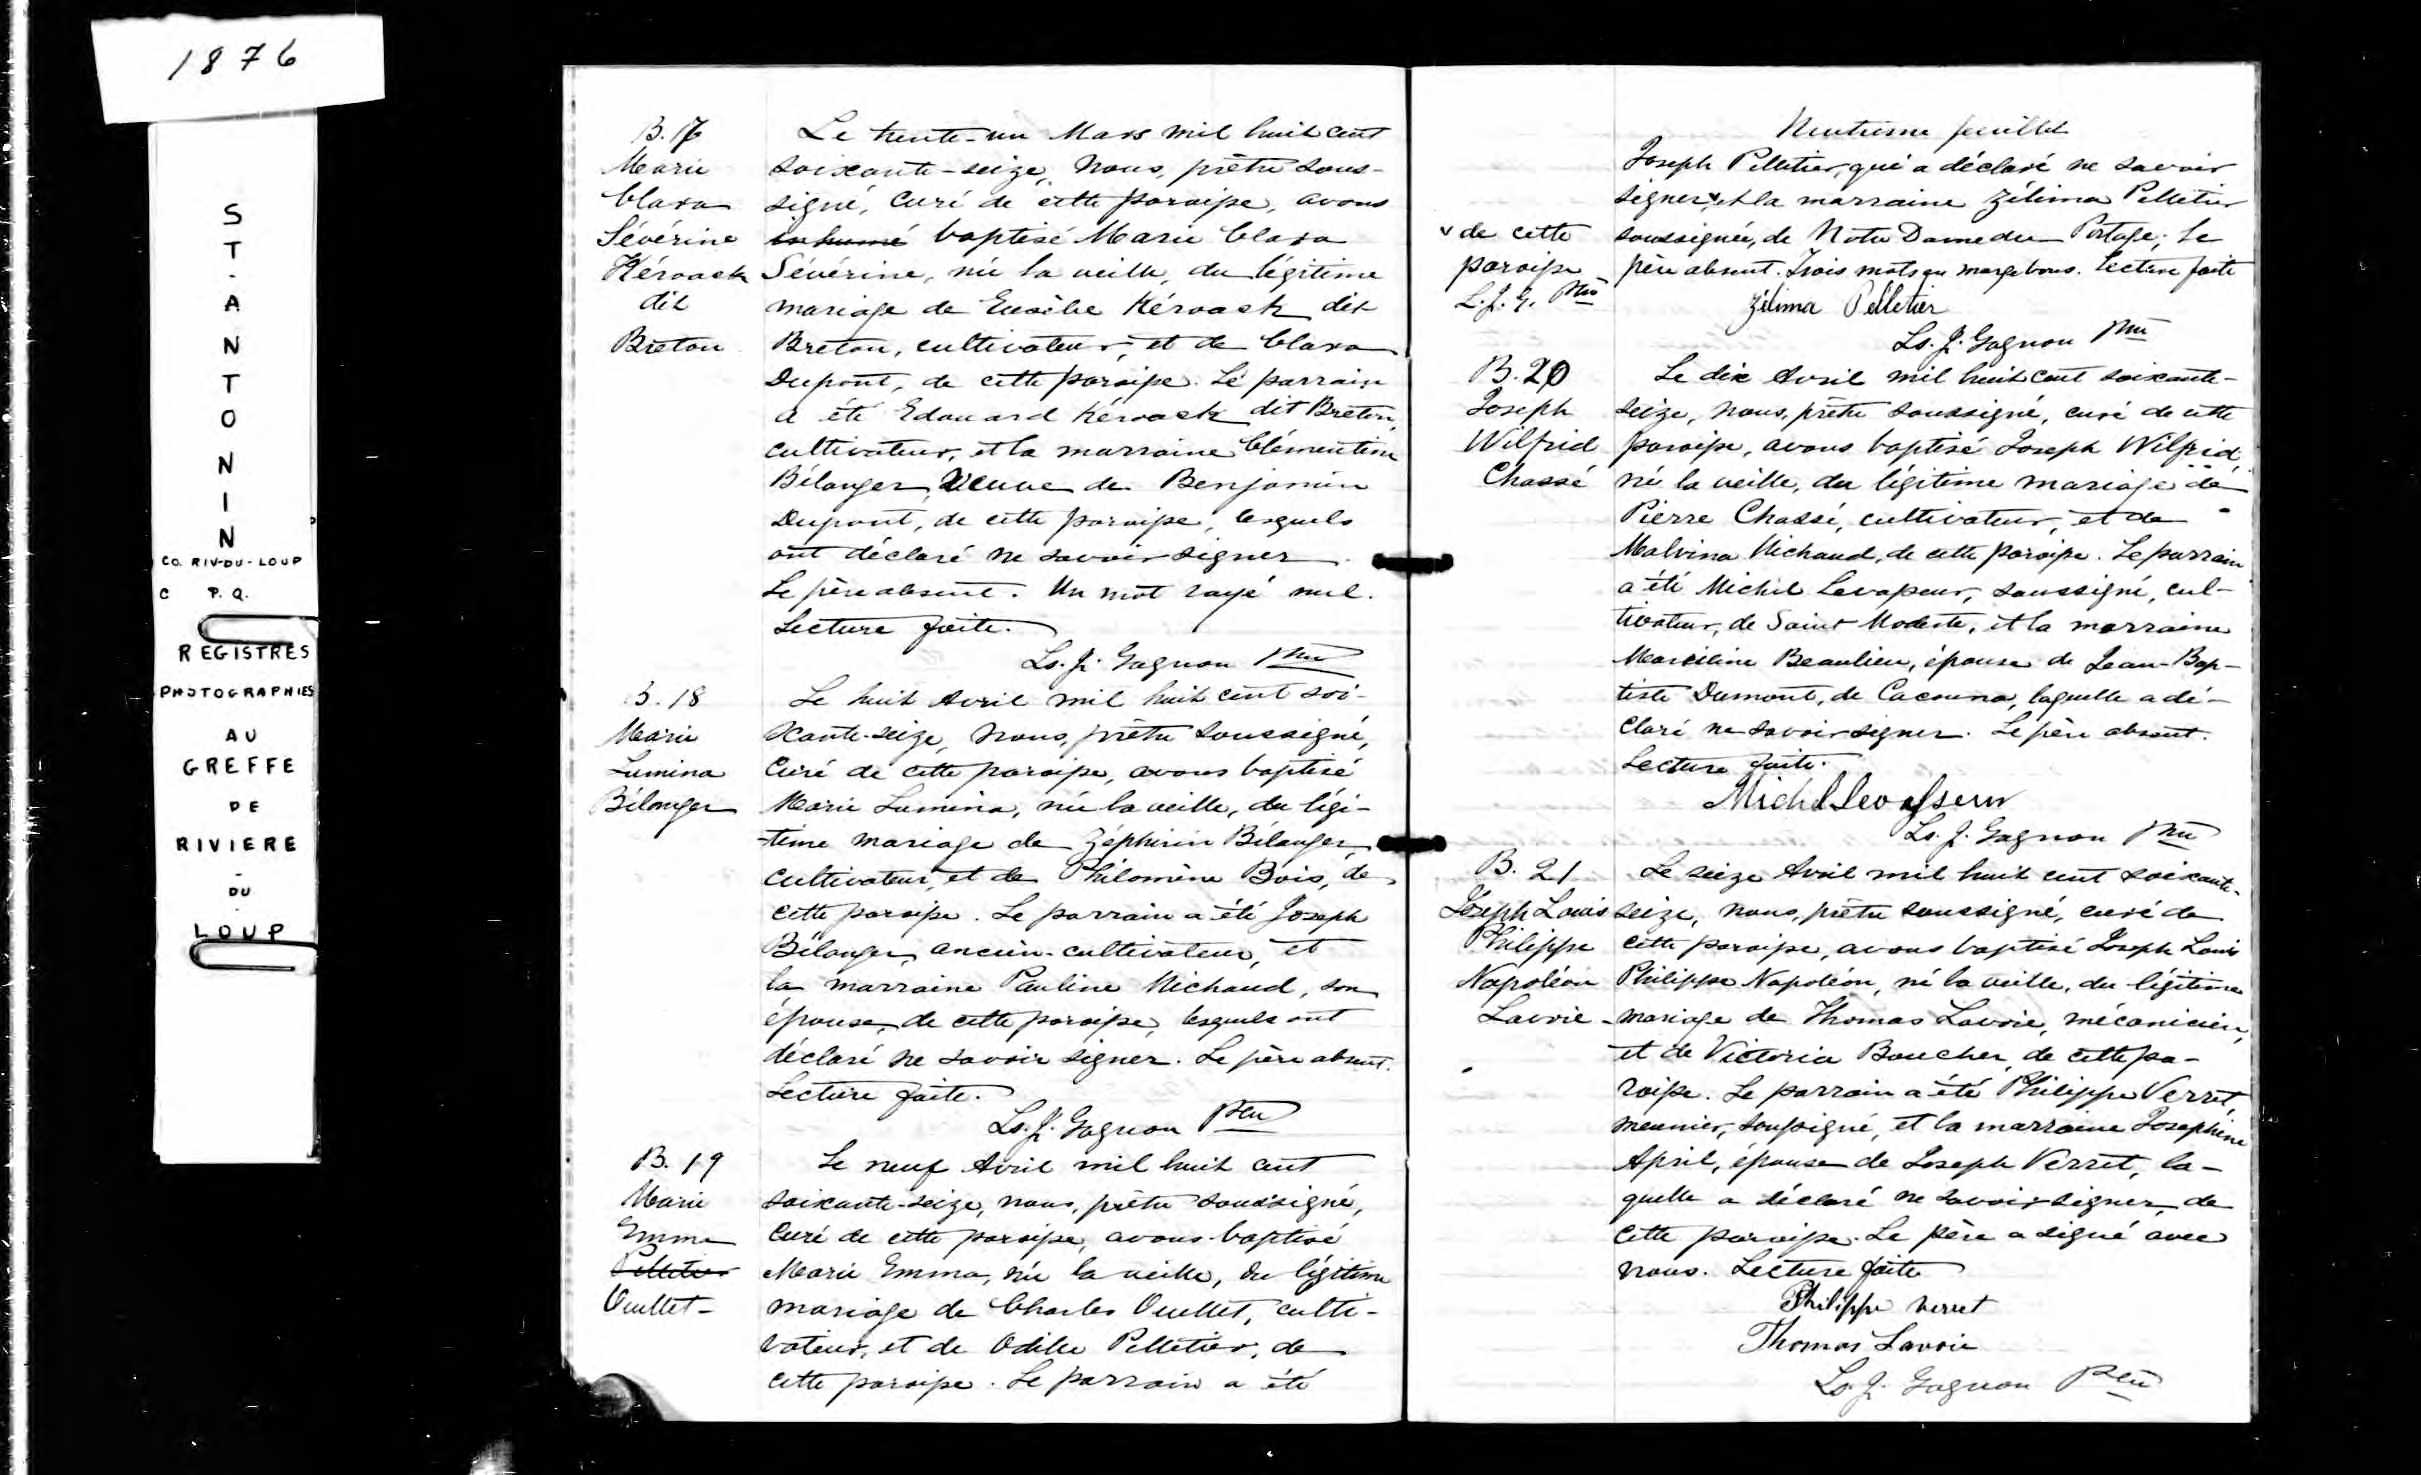 1876
S
T
-
A
N
T
O
N
I
N
CO. RIV-DU-LOUP
C P.Q.
REGISTRES
PHOTOGRAPHIES
AU
GREFFE
DE
RIVIERE
-
DU
-
LOUP
B. 17
Marie
Clara
Sévérine
Kéroack
dit
Breton
Le trente-un Mars mil huit cent
soixante-seize, nous, prêtre sous-
signé, curé de cette paroisse, avons
inhumé baptisé Marie Clara
Sévérine, née la veille, du légitime
mariage de Eusèbe Kéroack dit
Breton, cultivateur, et de Clara
Dupont, de cette paroisse. Le parrain
a été Edouard Kéroack dit Breton,
cultivateur, et la marraine Clémentine
Bélanger, veuve de Benjamin
Dupont, de cette paroisse, lesquels
ont déclaré ne savoir signer.
Le père absent. Un mot rayé nul.
Lecture faite.
Ls. J. Gagnon Ptre
B. 18
Marie
Lumina
Bélanger
Le huit Avril mil huit cent soi-
xante-seize, nous, prêtre soussigné,
curé de cette paroisse, avons baptisé
Marie Lumina, née la veille, du légi-
-time mariage de Zéphirin Bélanger,
cultivateur, et de Philomène Bois, de
cette paroisse. Le parrain a été Joseph
Bélanger, ancien-cultivateur, et
la marraine Pauline Michaud, son
épouse, de cette paroisse, lesquels ont
déclaré ne savoir signer. Le père absent.
Lecture faite.
Ls. J. Gagnon Ptre
B. 19
Marie
Emma
Pelletier
Ouellet-
Le neuf Avril mil huit cent
soixante-seize, nous, prêtre soussigné,
curé de cette paroisse, avons baptisé
Marie Emma, née la veille, du légitime
mariage de Charles Ouellet, culti-
vateur, et de Odile Pelletier, de
cette paroisse. Le parrain a été
feuillet
Joseph Pelletier, qui a déclaré ne savoir
signer, v et la marraine Zélima Pelletier
soussignée, de Notre Dame du Portage; le
père absent. Trois mots en marge bons. Lecture faite
v de cette
paroisse
L. J. G. Ptre
Zélima Pelletier
Ls. J. Gagnon Ptre
B. 20
Joseph
Wilfrid
Chassé
Le dix Avril mil huit cent soixante-
seize, nous, prêtre soussigné, curé de cette
paroisse, avons baptisé Joseph Wilfrid,
né la veille, du légitime mariage de
Pierre Chassé, cultivateur, et de
Malvina Michaud, de cette paroisse. Le parrain
a été Michel Levasseur, soussigné, cul-
tivateur, de Saint Modeste, et la marraine
Marceline Beaulieu, épouse de Jean-Bap-
tiste Dumont, de Cacouna, laquelle a dé-
claré ne savoir signer. Le père absent.
Lecture faite.
Michel Levasseur
Ls. J. Gagnon Ptre
B. 21
Joseph Louis
Philippe
Napoléon
Lavoie
Le seize Avril mil huit cent soixante-
seize, nous, prêtre soussigné, curé de
cette paroisse, avons baptisé Joseph Louis
Philippe Napoléon, né la veille, du légitime
mariage de Thomas Lavoie, mécanicien,
et de Victoria Boucher, de cette pa-
roisse. Le parrain a été Philippe Verret,
meunier, soussigné, et la marraine Josephine
April, épouse de Joseph Verret, la-
quelle a déclaré ne savoir signer, de
cette paroisse. Le père a signé avec
nous. Lecture faite
Philippe Verret
Thomas Lavoie
Ls. J. Gagnon Ptre